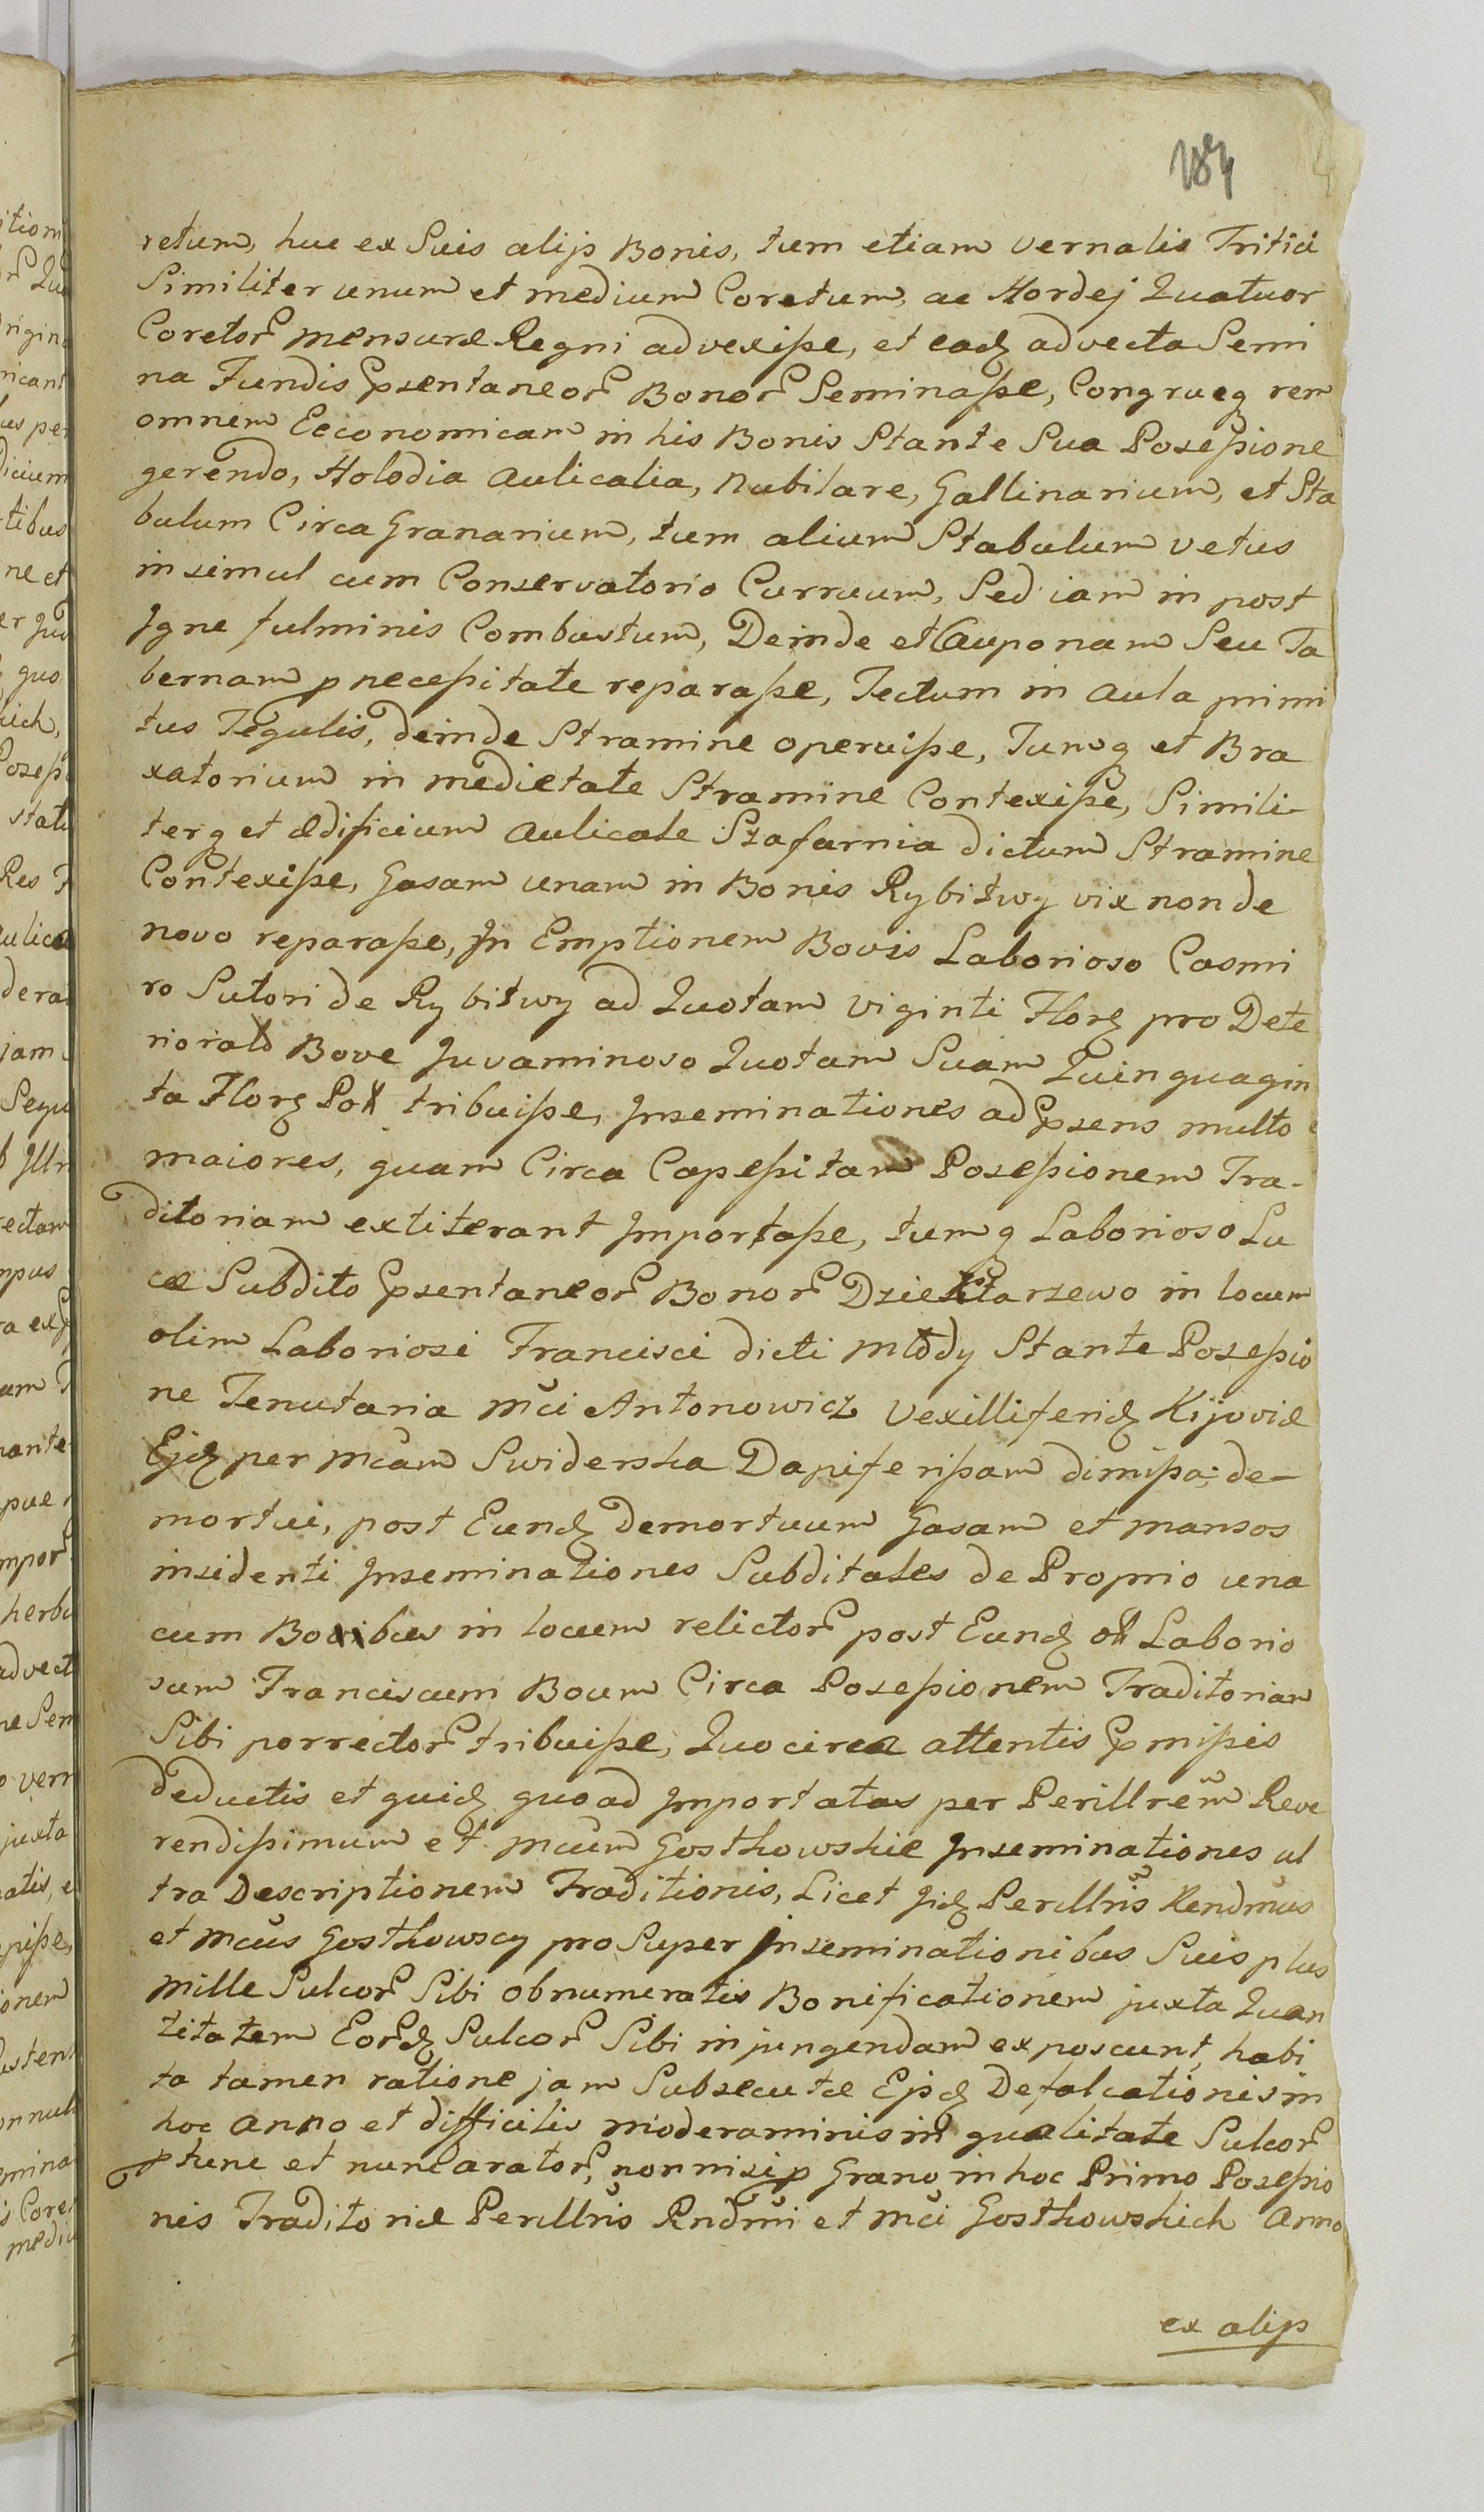 189
retum, huc ex Suis alijs Bonis, tum etiam vernalis Tritici
Similiter unum et medium Coretum, ac Hordej Quatuor
Coretor mensuræ Regni advexiße, et eadq advecta Semi
na Fundis Pręsentaneor Bonor Seminaße, Congrueq rem
omnem Eeconomicam in his Bonis Stante Sua Poseßione
gerendo, Holodia Aulicalia, Nubilare, Gallinarium, et Sta
bulum Circa Granarium, tum alium Stabulum vetus
insimul cum Conservatorio Curruum, Sed iam in post
Igne fulminis Combustum, Deinde et Cauponam Seu Ta
bernam p neceßitate reparaße, Tectum in Aula primi
tus Tegulis, deinde Stramine operuiße, Tumq et Bra
xatorium in medietate Stramine Contexiße, Simili
terq et Ædificium Aulicale Szafarnia dictum Stramine
Contexiße, Gasam unam in Bonis Rybitwy vix non de
novo reparaße, In Emptionem Bovis Laborioso Casmi
ro Sutori de Rybitwy ad Quotam viginti Florq pro Dete
riorato Bove Juvaminoso Quotam Suam Quinquagin
ta Florq Pol tribuiße, Inseminationes ad Pręsens multo
maiores, quam Circa Capeßitam Poseßionem Tra-
ditoriam extiterant Importaße, tumq Laborioso Lu
cæ Subdito Pręsentaneor Bonor Dziektarzewo in locum
olim Laboriosi Francisci dicti Młody Stante Poseßio
ne Tenutaria mci Antonowicz Vexilliferidq Kijoviæ
Ejdq per mcam Swiderska Dapiferißam dimißa; de-
mortui, post Eundq demortuum Gasam et mansos
insidenti Inseminationes Subditales de Proprio una
cum Bovibus in locum relictor post Eundq ol Laborio
sum Franciscum Boum Circa Poseßionem Traditoriam
Sibi porrector tribuiße, Quocirca attentis Pręmißis
deductis et quidq quoad Importatas per Perillrem Reve
rendißimum et mcum Gosthowskie Inseminationes ul
tra Descriptionem Traditionis, Licet Jidq Perillris Rendmus
et mcus Gosthowscy pro Super Inseminationibus Suis plus
mille Sulcor Sibi obnumeratis Bonificationem juxta Quan
titatem Eordq Sulcor Sibi injungendam exposcunt, habi
ta tamen ratione jam Subsecutæ Ejdq Defalcationis in
hoc Anno et difficilis moderaminis in qualitate Sulcor
p tunc et nunc arator, non nisi p Grano in hoc Primo Poseßio
nis Traditoriæ Perillris Rndmi et mci Gosthowskich Anno
ex alijs